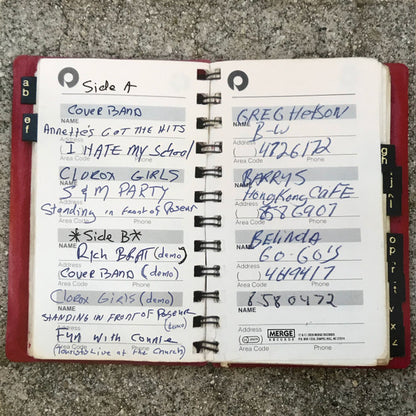 ab
ef
Side A
COVER BAND
NAME
Annette's GOT THE HITS
Address
I HATE MY School
Area Code Phone
CLOROX GIRLS
NAME
S & M PARTY
Address
Standing in front of Poseur
Area Code Phone
*Side B*
NAME
Rich BRAT (demo)
Address
COVER BAND (demo)
Area Code Phone
CLOROX GIRLS (demo)
NAME
STANDING IN FRONT OF POSEUR
(demo)
Address
Fun with Connie
Area Code Phone
(Tourists Live at The Church)
GREG HETSON
NAME
B-W
Address
( ) 4726172
Area Code Phone
BARRYS
NAME
HongKong CAFE
Address
( ) 8586907
Area Code Phone
BELINDA
NAME
GO-GO'S
Address
( ) 4619417
Area Code Phone
6580472
NAME
Address
( )
Area Code
MERGE
RECORDS
gh
j
l
op
r
t
v
x
z